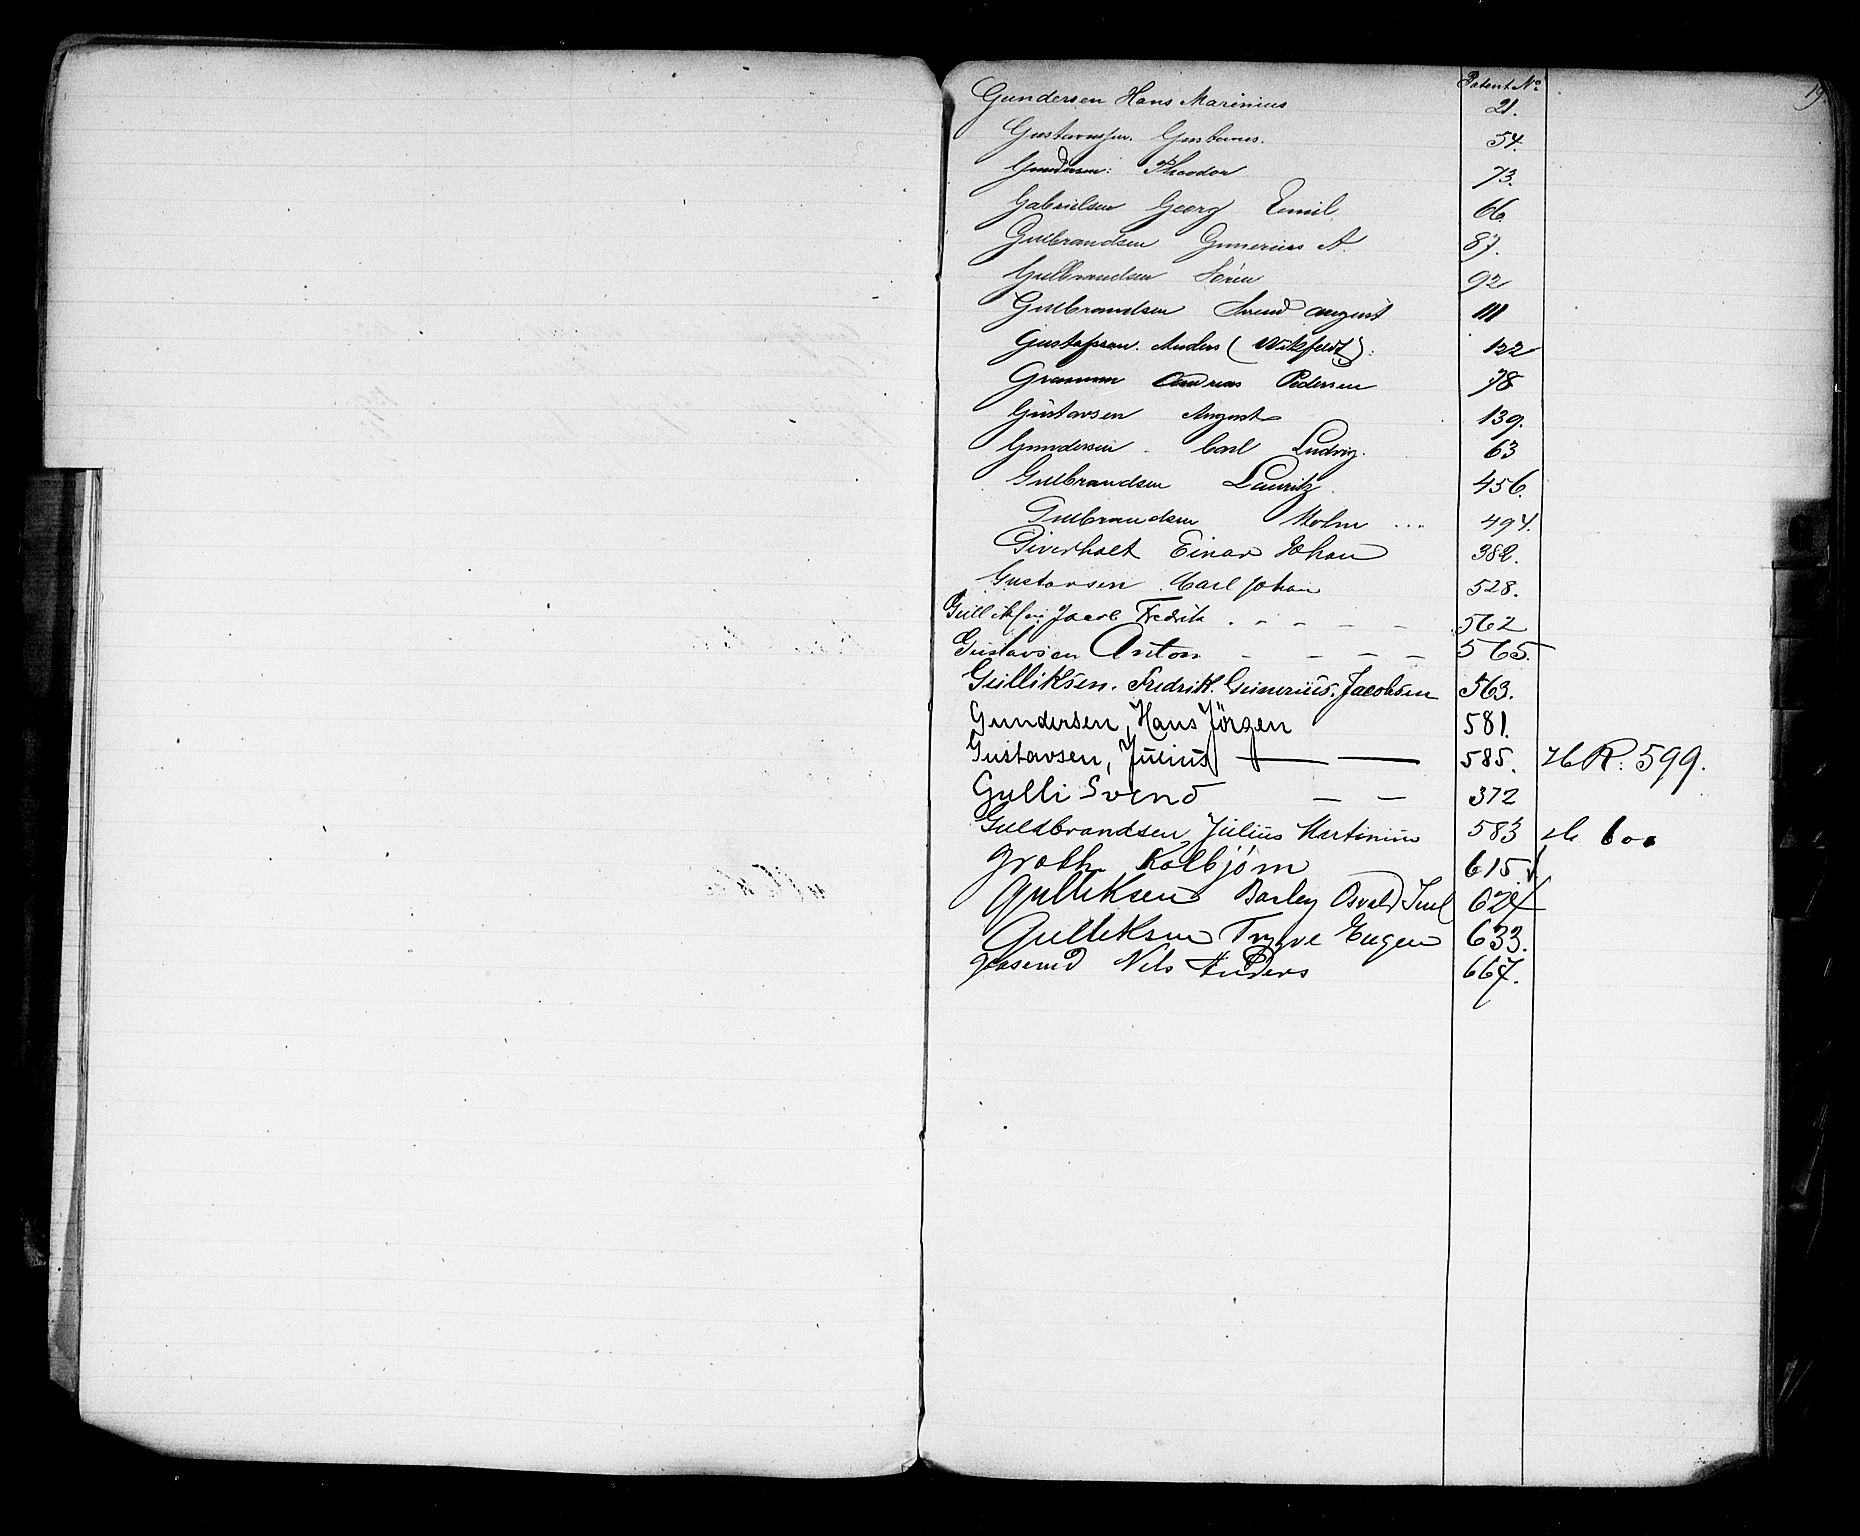 Patent No 19.
Gundersen Hans Marinius 21.
Gustavussen. Gustavus. 54.
Gundersen: Theodor 73.
Gabrielsen Georg Emil 66.
Gulbrandsen Gunerius A. 87.
Gulbrandsen Sören 92
Gulbrandsen Svend August 111
Gustafsson. Anders (Wikfeldt). 122
Gramm Andreas Pedersen 78
Gustavsen August 139.
Gundersen Carl Ludvig. 63
Gulbrandsen Lauritz 456.
Gulbrandsen Holm ... 494.
Giverholt Einar Johan 382.
Gustavsen Carl Johan 528.
Gulliksen Jacob Fredrik . - - - - - 562
Gustavsen Anton - - - - 565.
Gulliksen. Fredrik. Gunerius. Jacobsen 563.
Gundersen, Hans Jörgen 581.
Gustavsen, Julius — — 585. H R. 599.
Gulli Svend — — 372
Guldbrandsen, Julius Martinius 583 H 600
Groth Kolbjörn 615
Gulliksen Barley Osvald Juul 624
Gulliksen Trygve Eugen 633.
Nils Anders 667.